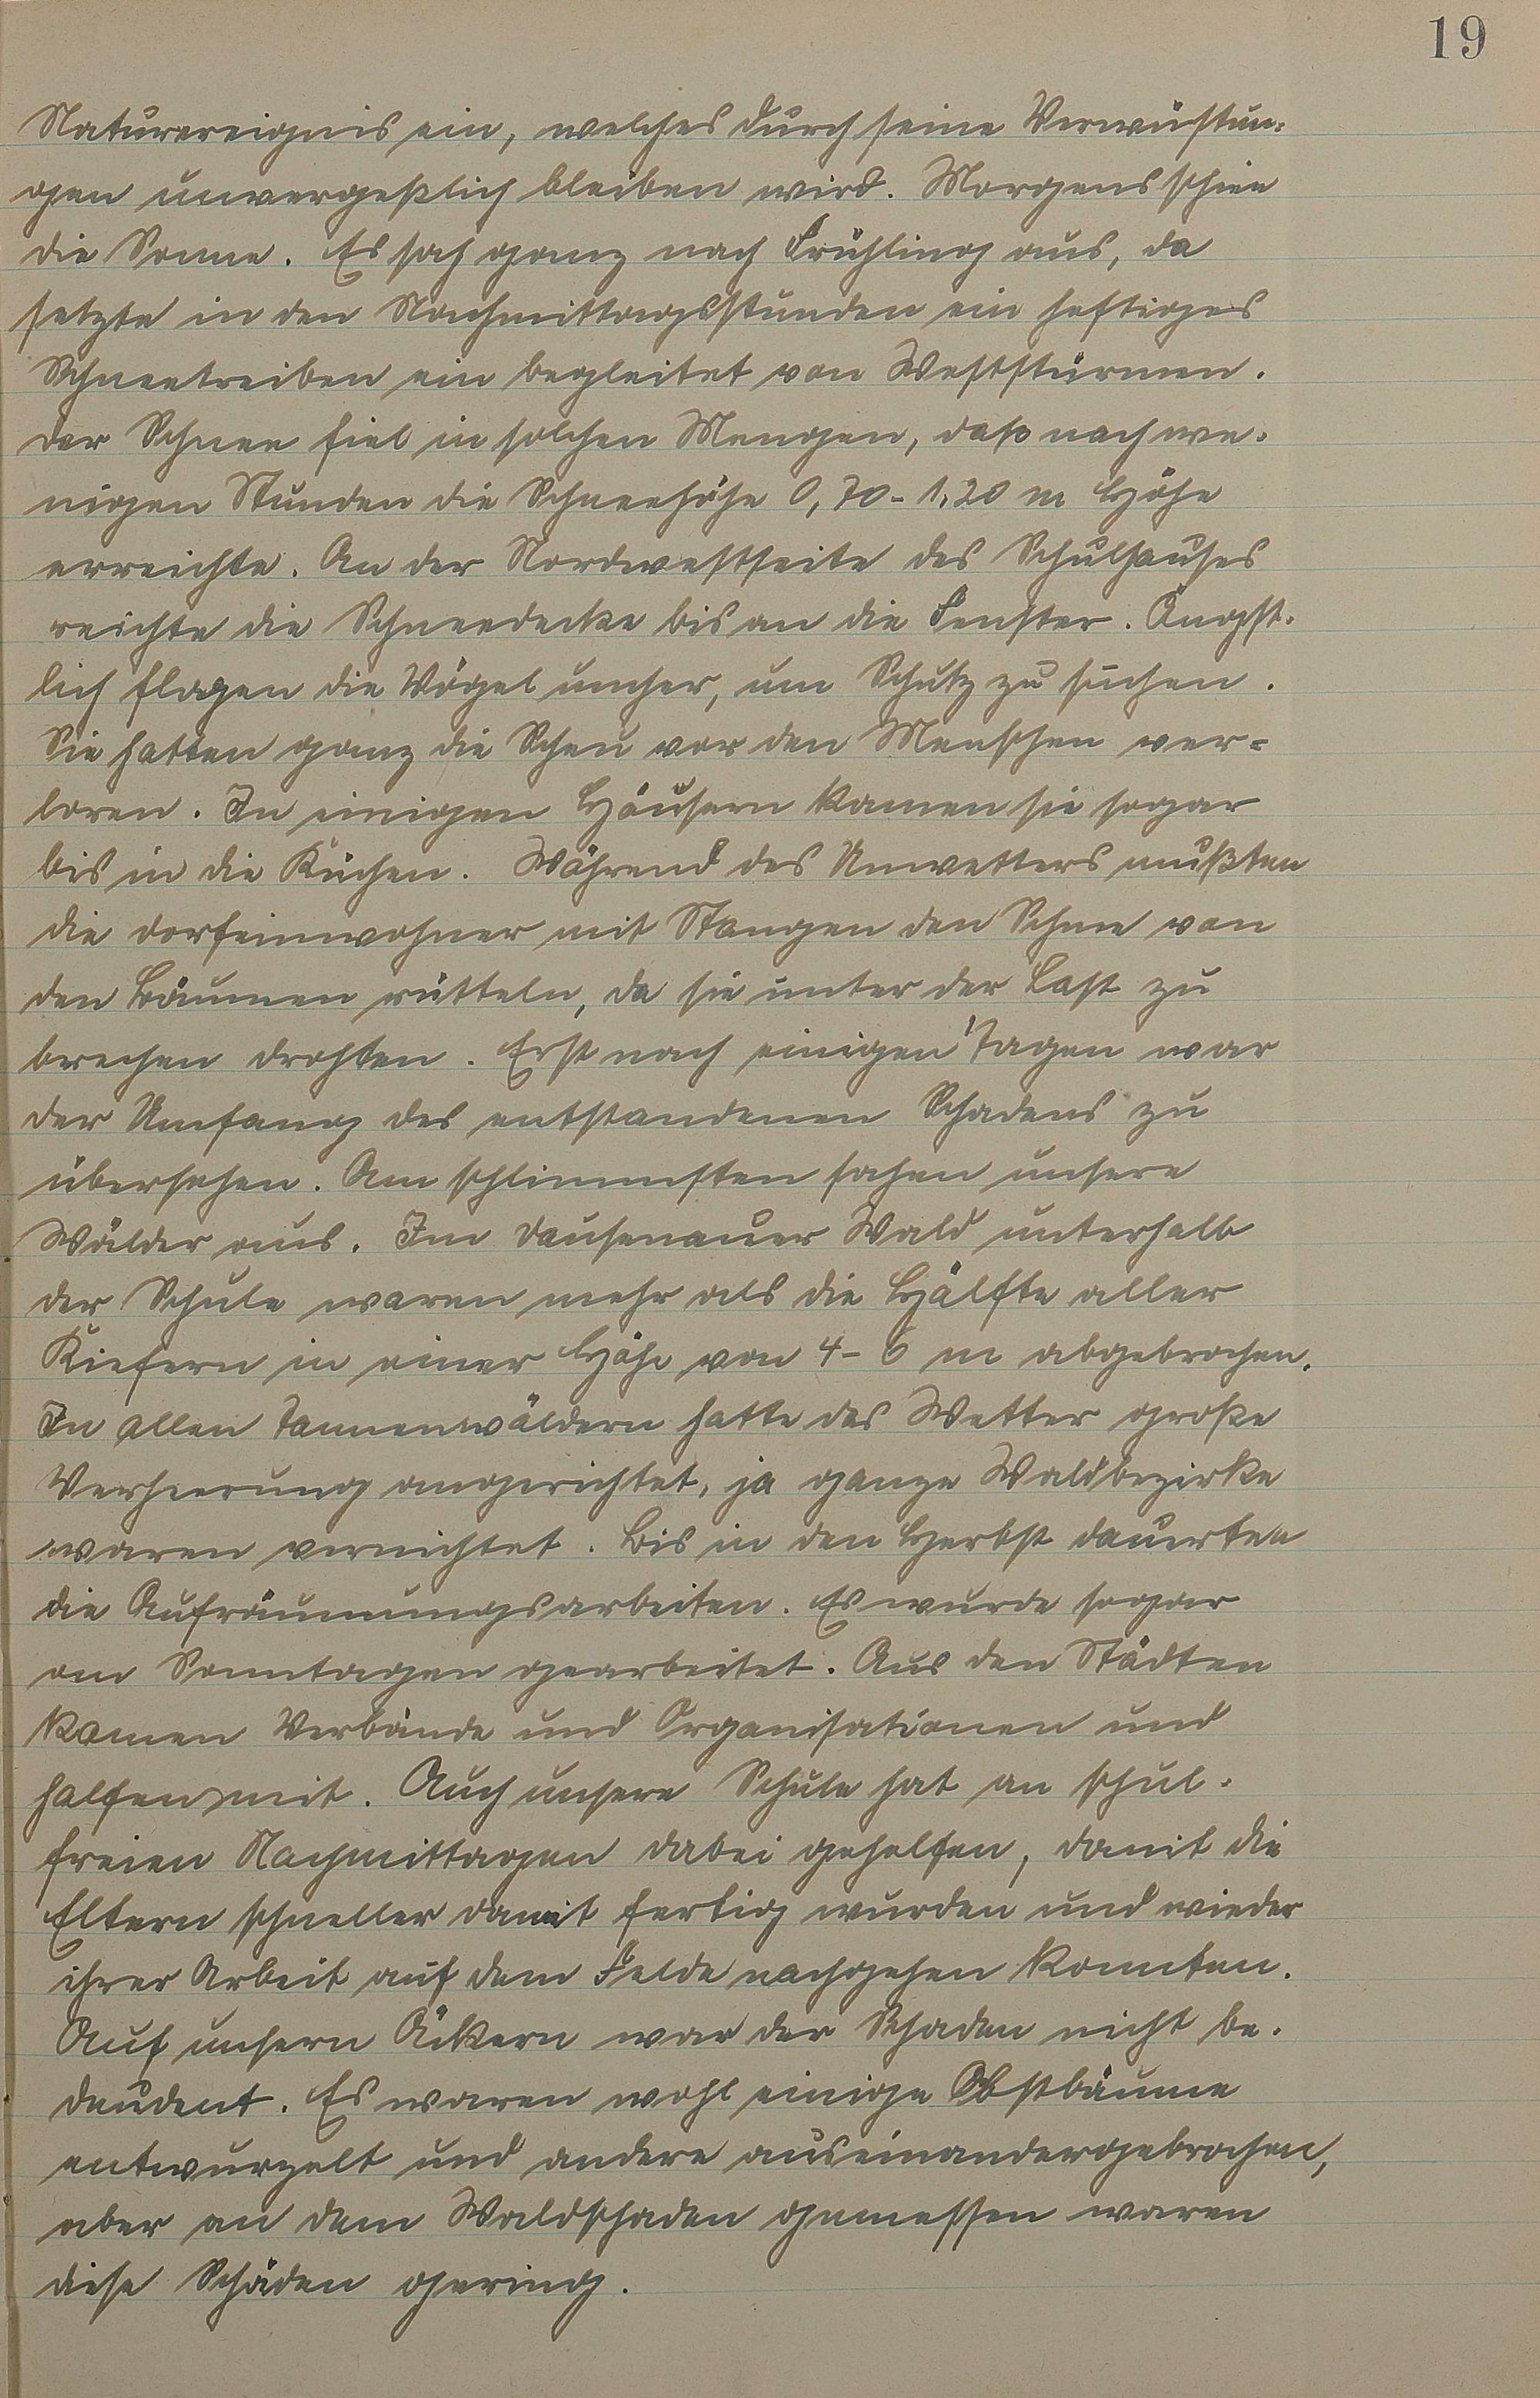 19
Naturereignis ein, welches durch seine Verwüstun-
gen unvergeßlich bleiben wird. Morgens schien
die Sonne. Es sah ganz nach Frühling aus, da
setzte in den Nachmittagsstunden ein heftiges
Schneetreiben ein begleitet von Weststürmen.
Der Schnee fiel in solchen Mengen, daß nach we-
nigen Stunden die Schneehöhe 0,70 - 1,20 m Höhe
erreichte. An der Nordwestseite des Schulhauses
reichte die Schneedecke bis an die Fenster. Ängst-
lich flogen die Vögel umher, um Schutz zu suchen.
Sie hatten ganz die Scheu vor den Menschen ver-
loren. In einigen Häusern kamen sie sogar
bis in die Küchen. Während des Unwetters mußten
die Dorfeinwohner mit Stangen den Schnee von
den Bäumen rütteln, da sie unter der Last zu
brechen drohten. Erst nach einigen Tagen war
der Umfang des entstandenen Schadens zu
übersehen. Am schlimmsten sahen unsere
Wälder aus. Im Dausenauer Wald unterhalb
der Schule waren mehr als die Hälfte aller
Kiefern in einer Höhe von 4 - 6 m abgebrochen.
In allen Tannenwäldern hatte das Wetter große
Verheerung angerichtet, ja ganze Waldbezirke
waren vernichtet. Bis in den Herbst dauerten
die Aufräumungsarbeiten. Es wurde sogar
an Sonntagen gearbeitet. Aus den Städten
kamen Verbände und Organisationen und
halfen mit. Auch unsere Schule hat an schul-
freien Nachmittagen dabei geholfen, damit die
Eltern schneller damit fertig wurden und wieder
ihrer Arbeit auf dem Felde nachgehen konnten.
Auf unsern Äckern war der Schaden nicht be-
deudent. Es waren wohl einige Obstbäume
entwurzelt und andere auseinandergebrochen,
aber an dem Waldschaden gemessen waren
diese Schäden gering.